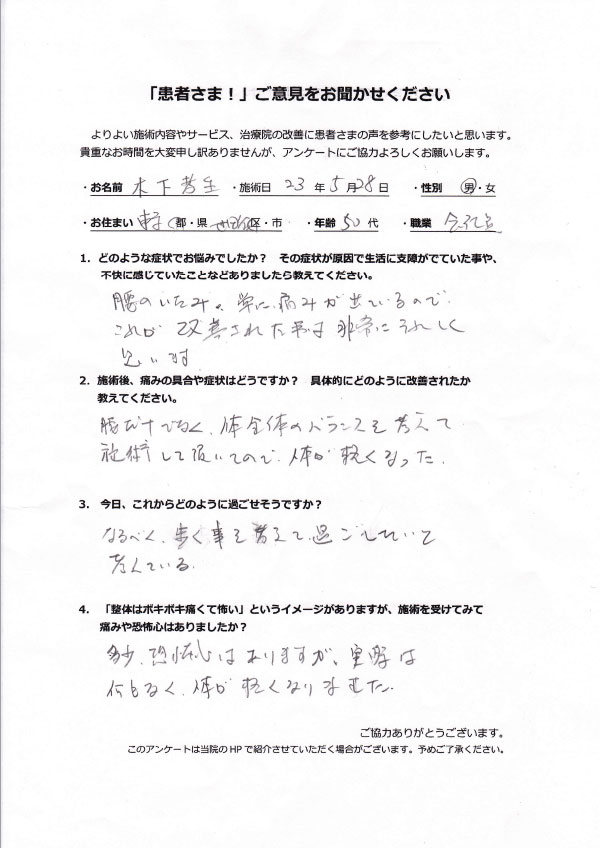 「患者さま！」ご意見をお聞かせください
よりよい施術内容やサービス、治療院の改善に患者さまの声を参考にしたいと思います。
貴重なお時間を大変申し訳ありませんが、アンケートにご協力よろしくお願いします。
・お名前 木下 ・施術日 23 年 5 月 28 日 ・性別 男・女
・お住まい 東京 都・県 世田谷 区・市 ・年齢 50 代 ・職業 会社員
1. どのような症状でお悩みでしたか？ その症状が原因で生活に支障がでていた事や、
不快に感じていたことなどありましたら教えてください。
腰のいたみ。常に痛みが出ているので、
これが改善された事は非常にうれしく
思います
2. 施術後、痛みの具合や症状はどうですか？ 具体的にどのように改善されたか
教えてください。
腰だけでなく、体全体のバランスを考えて
施術して頂いたので、体が軽くなった.
3. 今日、これからどのように過ごせそうですか？
なるべく、歩く事を考えて過ごしたいと
考えている.
4. 「整体はボキボキ痛くて怖い」というイメージがありますが、施術を受けてみて
痛みや恐怖心はありましたか？
多少、恐怖心はありますが、実際は
何もなく、体が軽くなりました.
ご協力ありがとうございます。
このアンケートは当院のHPで紹介させていただく場合がございます。予めご了承ください。